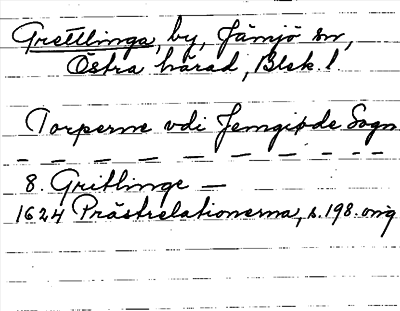 Grettlinga, by, Jämjö sn,
Östra härad, Blek. l.
Torperne vdi Jemgiøde Sogn
— — — — — — — — — —
8. Gritlinge —
1624 Prästrelationerna, s. 198. orig